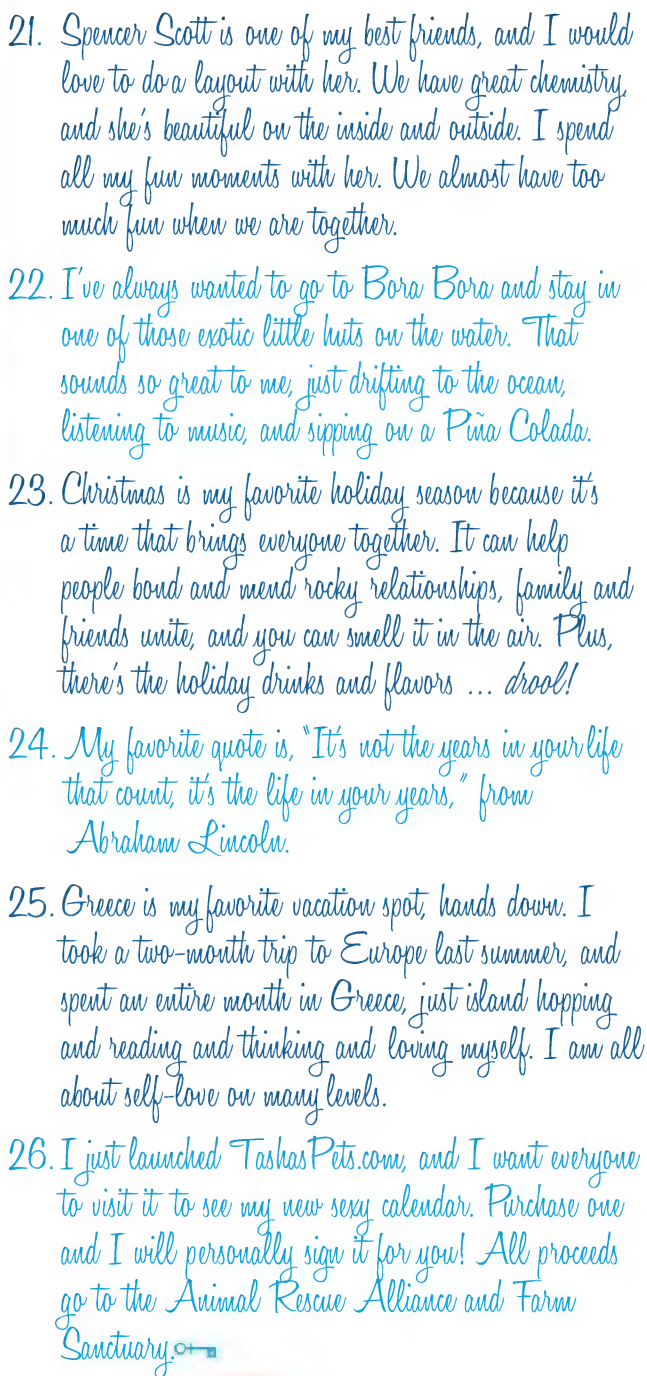 21. Spencer Scott is one of my best friends, and I would
love to do a layout with her. We have great chemistry,
and she's beautiful on the inside and outside. I spend
all my fun moments with her. We almost have too
much fun when we are together.
22. I've always wanted to go to Bora Bora and stay in
one of those exotic little huts on the water. That
sounds so great to me, just drifting to the ocean,
listening to music, and sipping on a Piña Colada.
23. Christmas is my favorite holiday season because it's
a time that brings everyone together. It can help
people bond and mend rocky relationships, family and
friends unite, and you can smell it in the air. Plus,
there's the holiday drinks and flavors ... drool!
24. My favorite quote is, "It's not the years in your life
that count, it's the life in your years," from
Abraham Lincoln.
25. Greece is my favorite vacation spot, hands down. I
took a two-month trip to Europe last summer, and
spent an entire month in Greece, just island hopping
and reading and thinking and loving myself. I am all
about self-love on many levels.
26. I just launched TashasPets.com, and I want everyone
to visit it to see my new sexy calendar. Purchase one
and I will personally sign it for you! All proceeds
go to the Animal Rescue Alliance and Farm
Sanctuary.